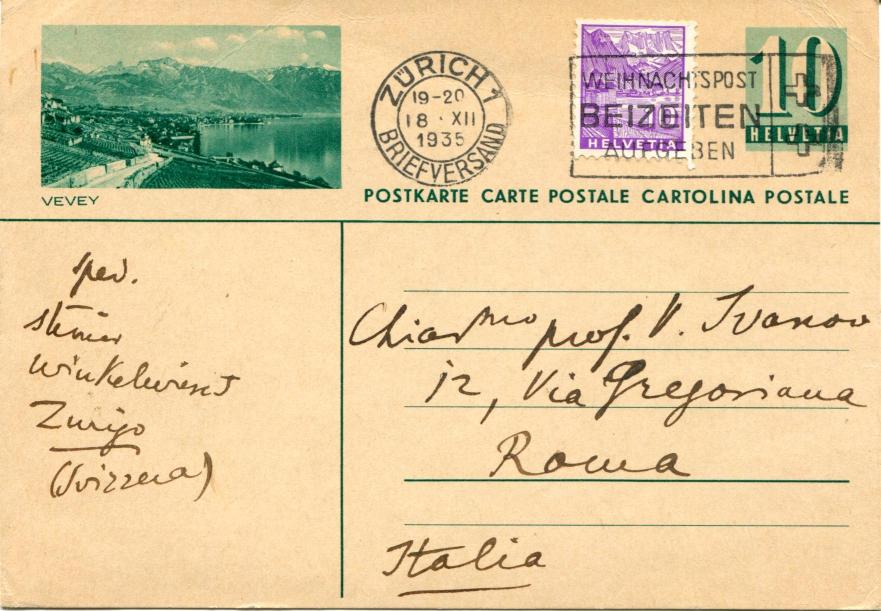 VEVEY
ZÜRICH 1
19-20
18 · XII
1935
BRIEFVERSAND
HELVETIA
10
HELVETIA
WEIHNACHTSPOST
BEIZEITEN
AUFGEBEN
POSTKARTE CARTE POSTALE CARTOLINA POSTALE
sped.
Steiner
Winkelwiese 5
Zurigo
(Svizzera)
Chiarmo prof. V. Ivanov
12, Via Gregoriana
Roma
Italia